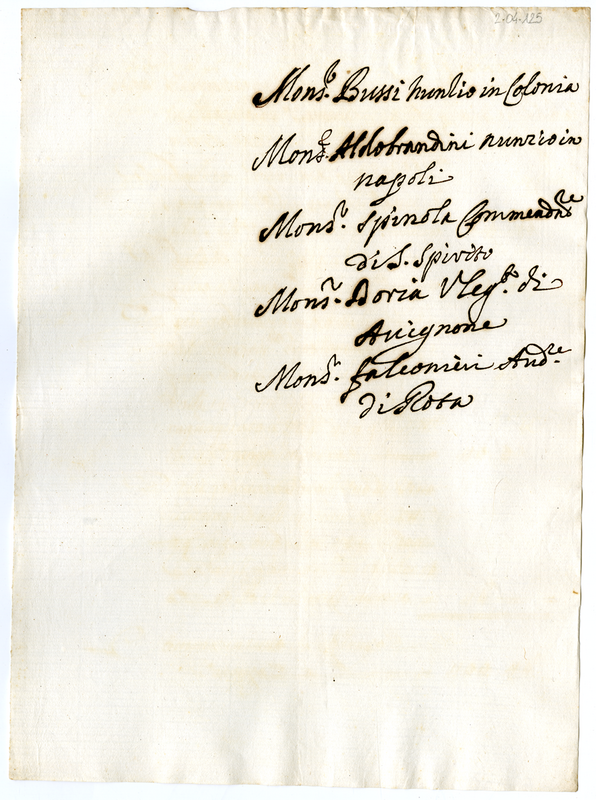 2.04.125
Mons.r Bussi Nuntio in Colonia
Mons.r Aldobrandini nunzio in
napoli
Mons.r Spinola Commendre
di S. Spirito
Mons.r Doria Vleg.to di
Auignone
Mons.r falconieri Aud.re
di Rota